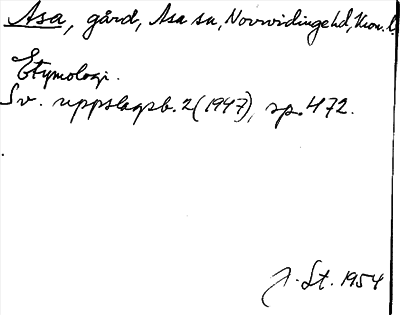 Asa, gård, Asa sn, Norrvidinge hd, Kron. l.
Etymologi.
Sv. uppslagsb. 2 (1947), sp. 472.
J. St. 1954